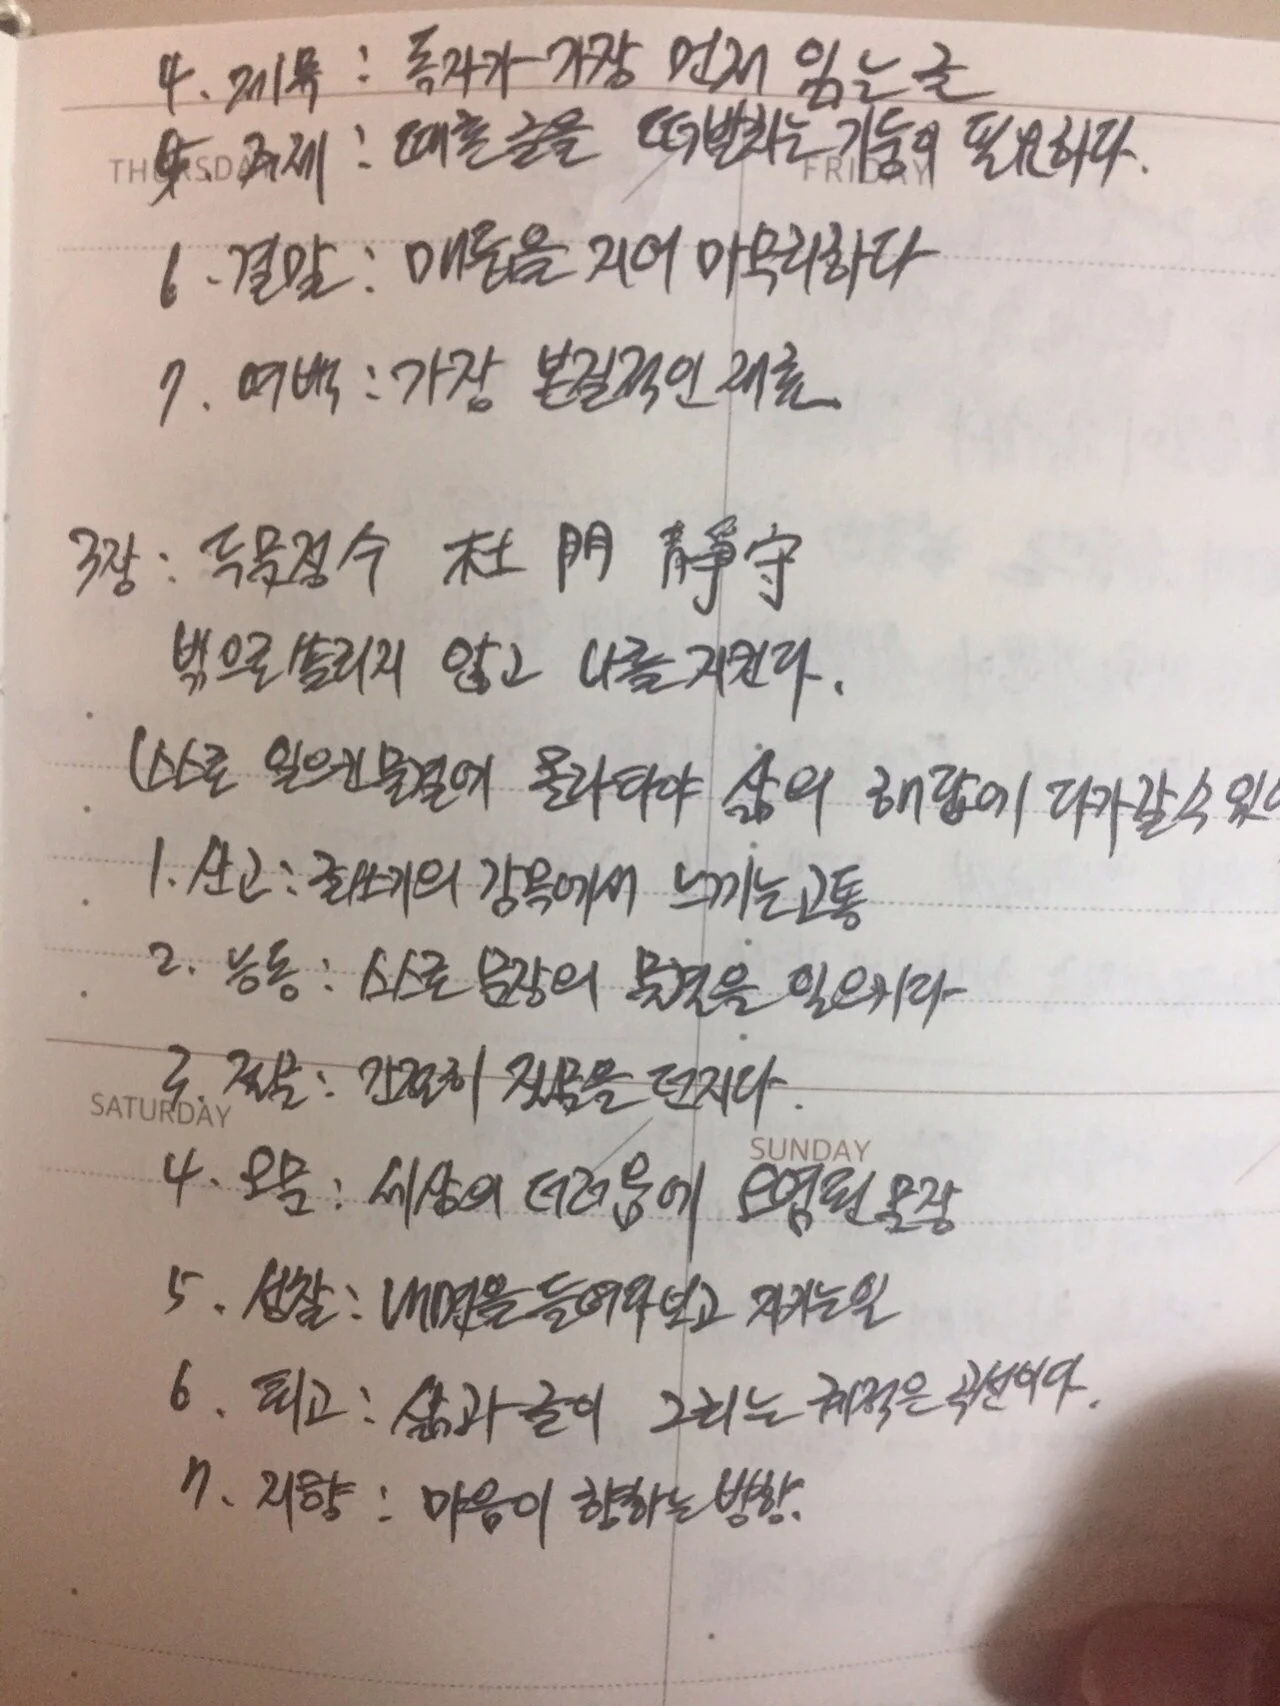 4. 제목 : 독자가 가장 먼저 읽는 글
5. 주제 : 때론 글을 떠받치는 기둥이 필요하다.
THURSDAY FRIDAY
6. 결말 : 매듭을 지어 마무리하다
7. 여백 : 가장 본질적인 재료
3장 : 두문정수 杜門靜守
밖으로 쏠리지 않고 나를 지킨다.
(스스로 일으킨 물결에 올라타야 삶의 해답에 다가갈 수 있
1. 산고 : 글쓰기의 감옥에서 느끼는 고통
2. 능동 : 스스로 문장의 물결을 일으키다
3. 질문 : 간절히 질문을 던지다.
SATURDAY SUNDAY
4. 오문 : 세상의 더러움에 오염된 문장
5. 성찰 : 내면을 들여다보고 지키는 일
6. 퇴고 : 삶과 글이 그리는 궤적은 곡선이다.
7. 지향 : 마음이 향하는 방향.